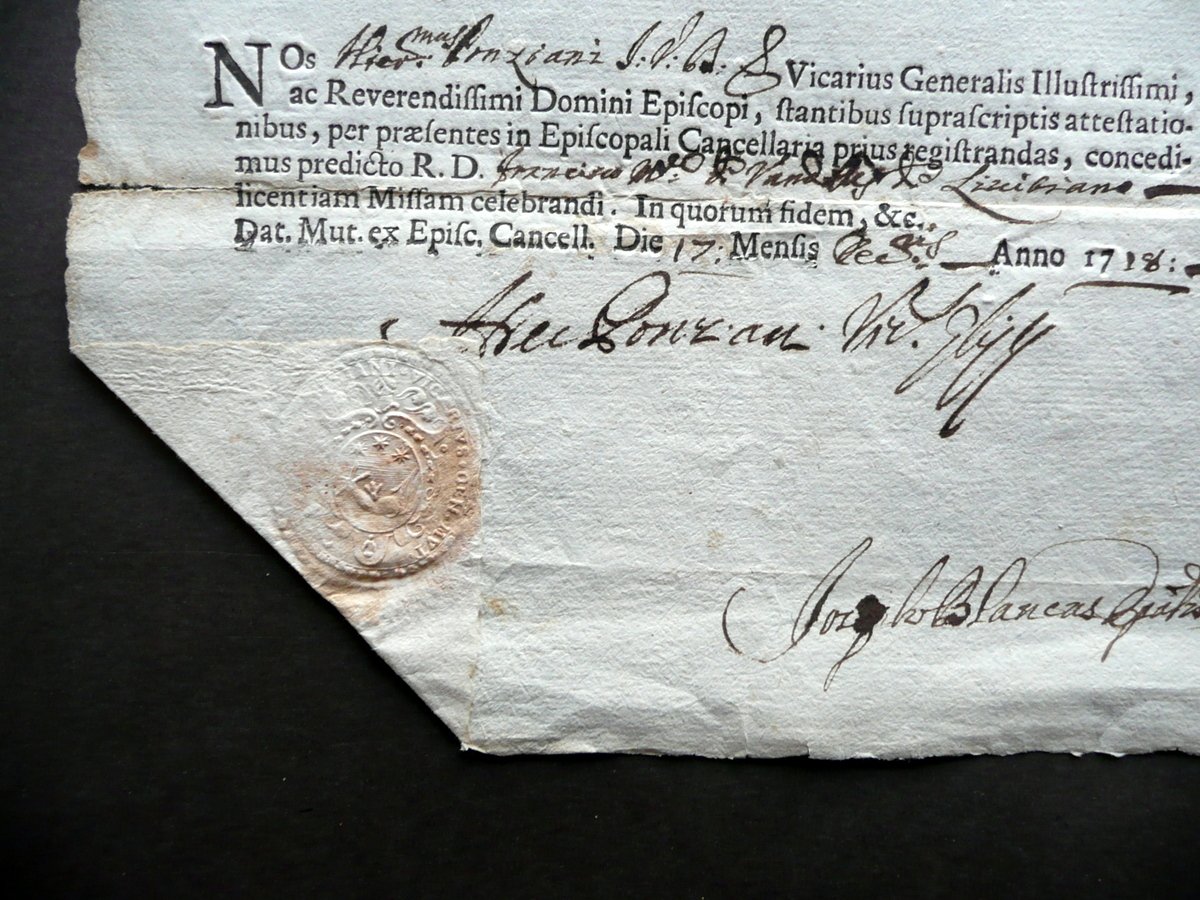 NOs Hier.mus Ponziani J. V. D. & Vicarius Generalis Illustriſſimi,
ac Reverendiſſimi Domini Epiſcopi, ſtantibus ſupraſcriptis atteſtatio-
nibus, per præſentes in Epiſcopali Cancellaria prius regiſtrandas, concedi-
mus predicto R. D.
licentiam Miſſam celebrandi. In quorum fidem, &c.
Dat. Mut. ex Epiſc. Cancell. Die 17: Mensis Anno 1718:
Hier Ponzian
Blancas